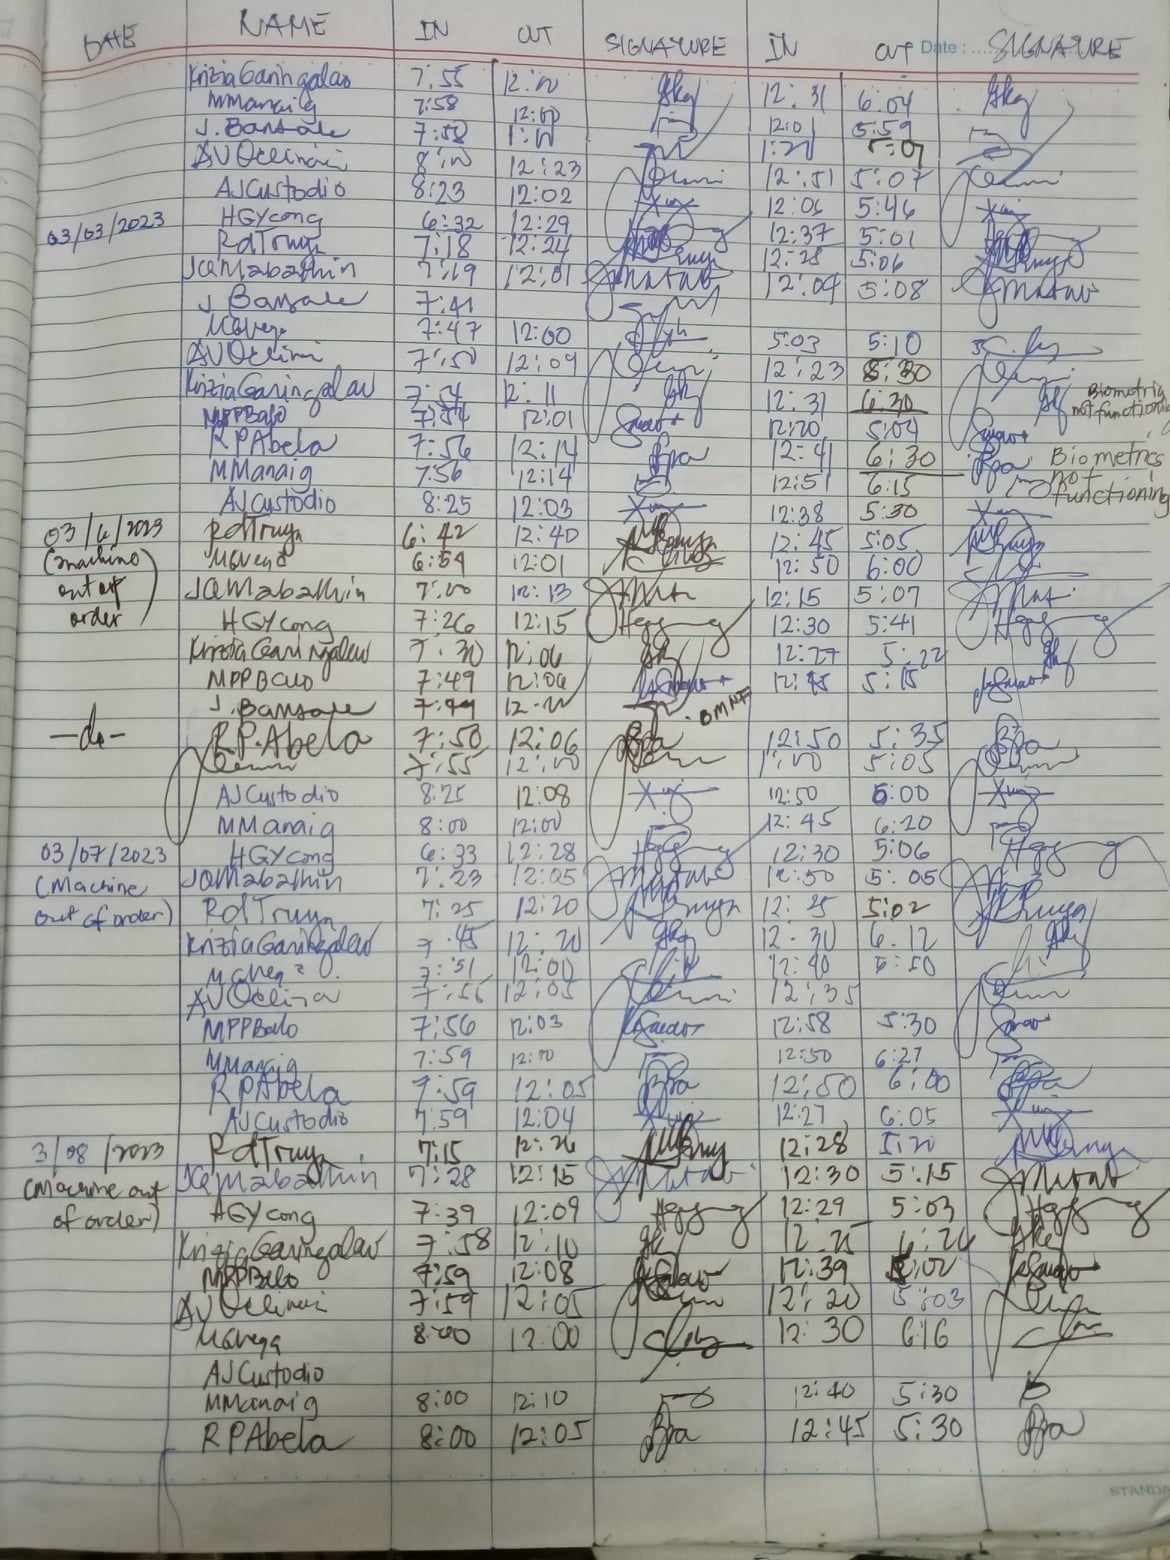 DATE NAME IN OUT SIGNATURE IN OUT Date : SIGNATURE
KriziaGaringalao 7:55 12:00 12:31 6:04
MManaig 7:58 12:00 12:01 5:59
J. Bansale 7:58 1:00 5:07
8:00 12:23 12:51 5:07
AJCustodio 8:23 12:02 12:06 5:46
03/03/2023 HGYcong 6:32 12:29 12:37 5:01
RdTruya 7:18 12:24 12:28 5:06
JQMabathin 7:19 12:01 12:04 5:08
J. Bansale 7:41
7:47 12:00 5:03 5:10
7:50 12:09 12:23 8:30
KriziaGaringalao 7:54 12:11 12:31 6:30 Biometrics
not functioning
MPPBalo 7:54 12:01 12:20 5:04
RPAbela 7:56 12:14 12:41 6:30 Biometrics
MManaig 7:56 12:14 12:51 6:15 not functioning
AJCustodio 8:25 12:03 12:38 5:30
03/6/2023 RdTruya 6:42 12:40 12:45 5:05
(machine 6:54 12:01 12:50 6:00
out of JQMabathin 7:00 12:13 12:15 5:07
order) HGYcong 7:26 12:15 12:30 5:41
KriziaGaringalao 7:30 12:06 12:27 5:22
MPPBalo 7:49 12:06 12:45 5:15
J. Bansale 7:49 12:00 BMNF
-do- R.P.Abela 7:50 12:06 12:50 5:35
7:55 12:00 1:00 5:05
AJCustodio 8:25 12:08 12:50 5:00
MManaig 8:00 12:00 12:45 6:20
03/07/2023 HGYcong 6:33 12:28 12:30 5:06
(Machine JQMabathin 7:23 12:05 12:50 5:05
out of order) RdTruya 7:25 12:20 12:25 5:02
KriziaGaringalao 7:45 12:20 12:30 6:12
7:51 12:00 12:40 5:50
7:56 12:05 12:35
MPPBalo 7:56 12:03 12:58 5:30
MManaig 7:59 12:10 12:50 6:27
RPAbela 7:59 12:05 12:50 6:00
AJCustodio 7:59 12:04 12:27 6:05
3/08/2023 RdTruya 7:15 12:26 12:28 5:20
(Machine out JQMabathin 7:28 12:15 12:30 5:15
of order) HGYcong 7:39 12:09 12:29 5:03
KriziaGaringalao 7:58 12:10 12:25 6:26
MPPBalo 7:59 12:08 12:39 5:02
7:59 12:05 12:20 5:03
8:00 12:00 12:30 6:16
AJCustodio
MManaig 8:00 12:10 12:40 5:30
RPAbela 8:00 12:05 12:45 5:30